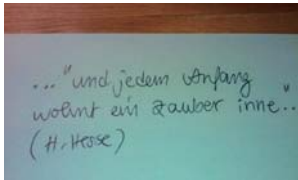 ..."und jedem Anfang
wohnt ein Zauber inne"..
(H. Hesse)